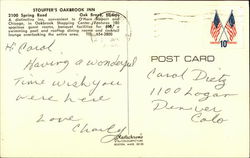 STOUFFER'S OAKBROOK INN
2100 Spring Road Oak Brook, Illinois
A distinctive inn, convenient to O'Hare Airport and
Chicago, in Oakbrook Shopping Center. Features
guest rooms, banquet facilities for
swimming pool and rooftop dining rooms and cocktail
lounge overlooking the entire area.
Hi Carol
Having a wonderful
time wish you
were here
Love
Charley
10¢
POST CARD
Carol Dietz
1100 Logan
Denver
Colo